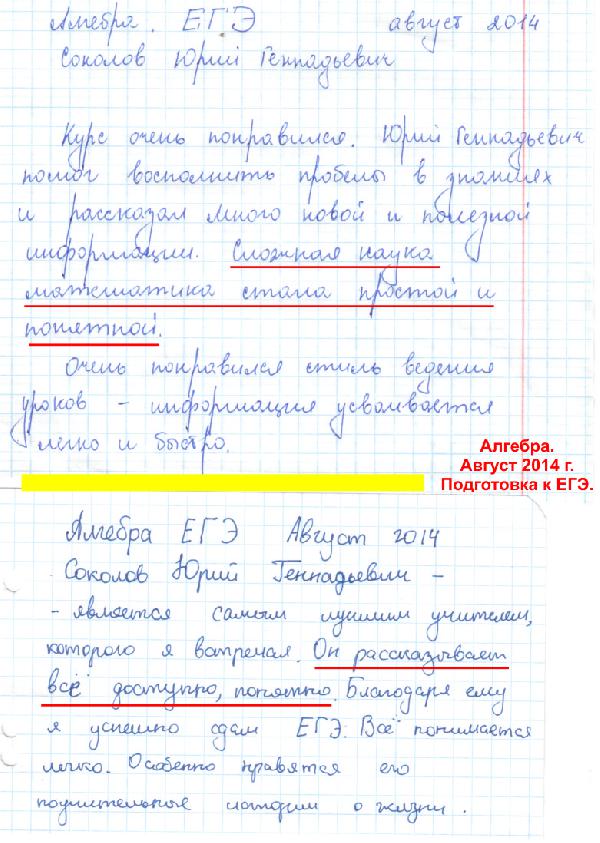 Алгебра. ЕГЭ август 2014
Соколов Юрий Геннадьевич
Курс очень понравился. Юрий Геннадьевич
помог восполнить пробелы в знаниях
и рассказал много новой и полезной
информации. Сложная наука
математика стала простой и
понятной.
Очень понравился стиль ведения
уроков – информация усваивается
легко и быстро.
Алгебра.
Август 2014 г.
Подготовка к ЕГЭ.
Алгебра ЕГЭ Август 2014
Соколов Юрий Геннадьевич –
- является самым лучшим учителем,
которого я встречал. Он рассказывает
всё доступно, понятно. Благодаря ему
я успешно сдам ЕГЭ. Всё понимается
легко. Особенно нравятся его
поучительные истории о жизни.